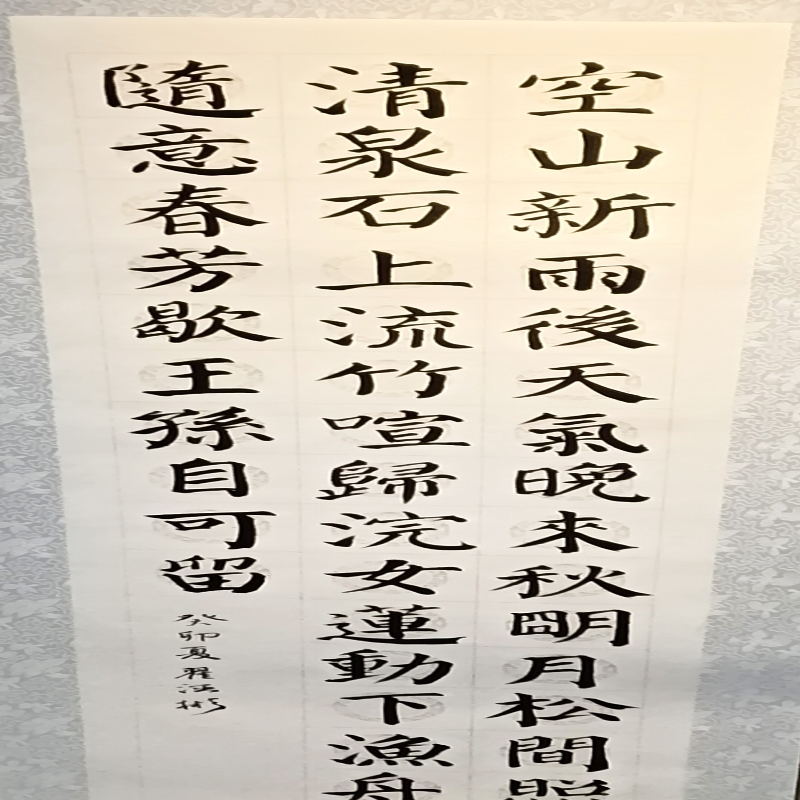 空山新雨後天氣晚來秋明月松間照
清泉石上流竹喧歸浣女蓮動下漁舟
隨意春芳歇王孫自可留
癸卯夏翟江彬